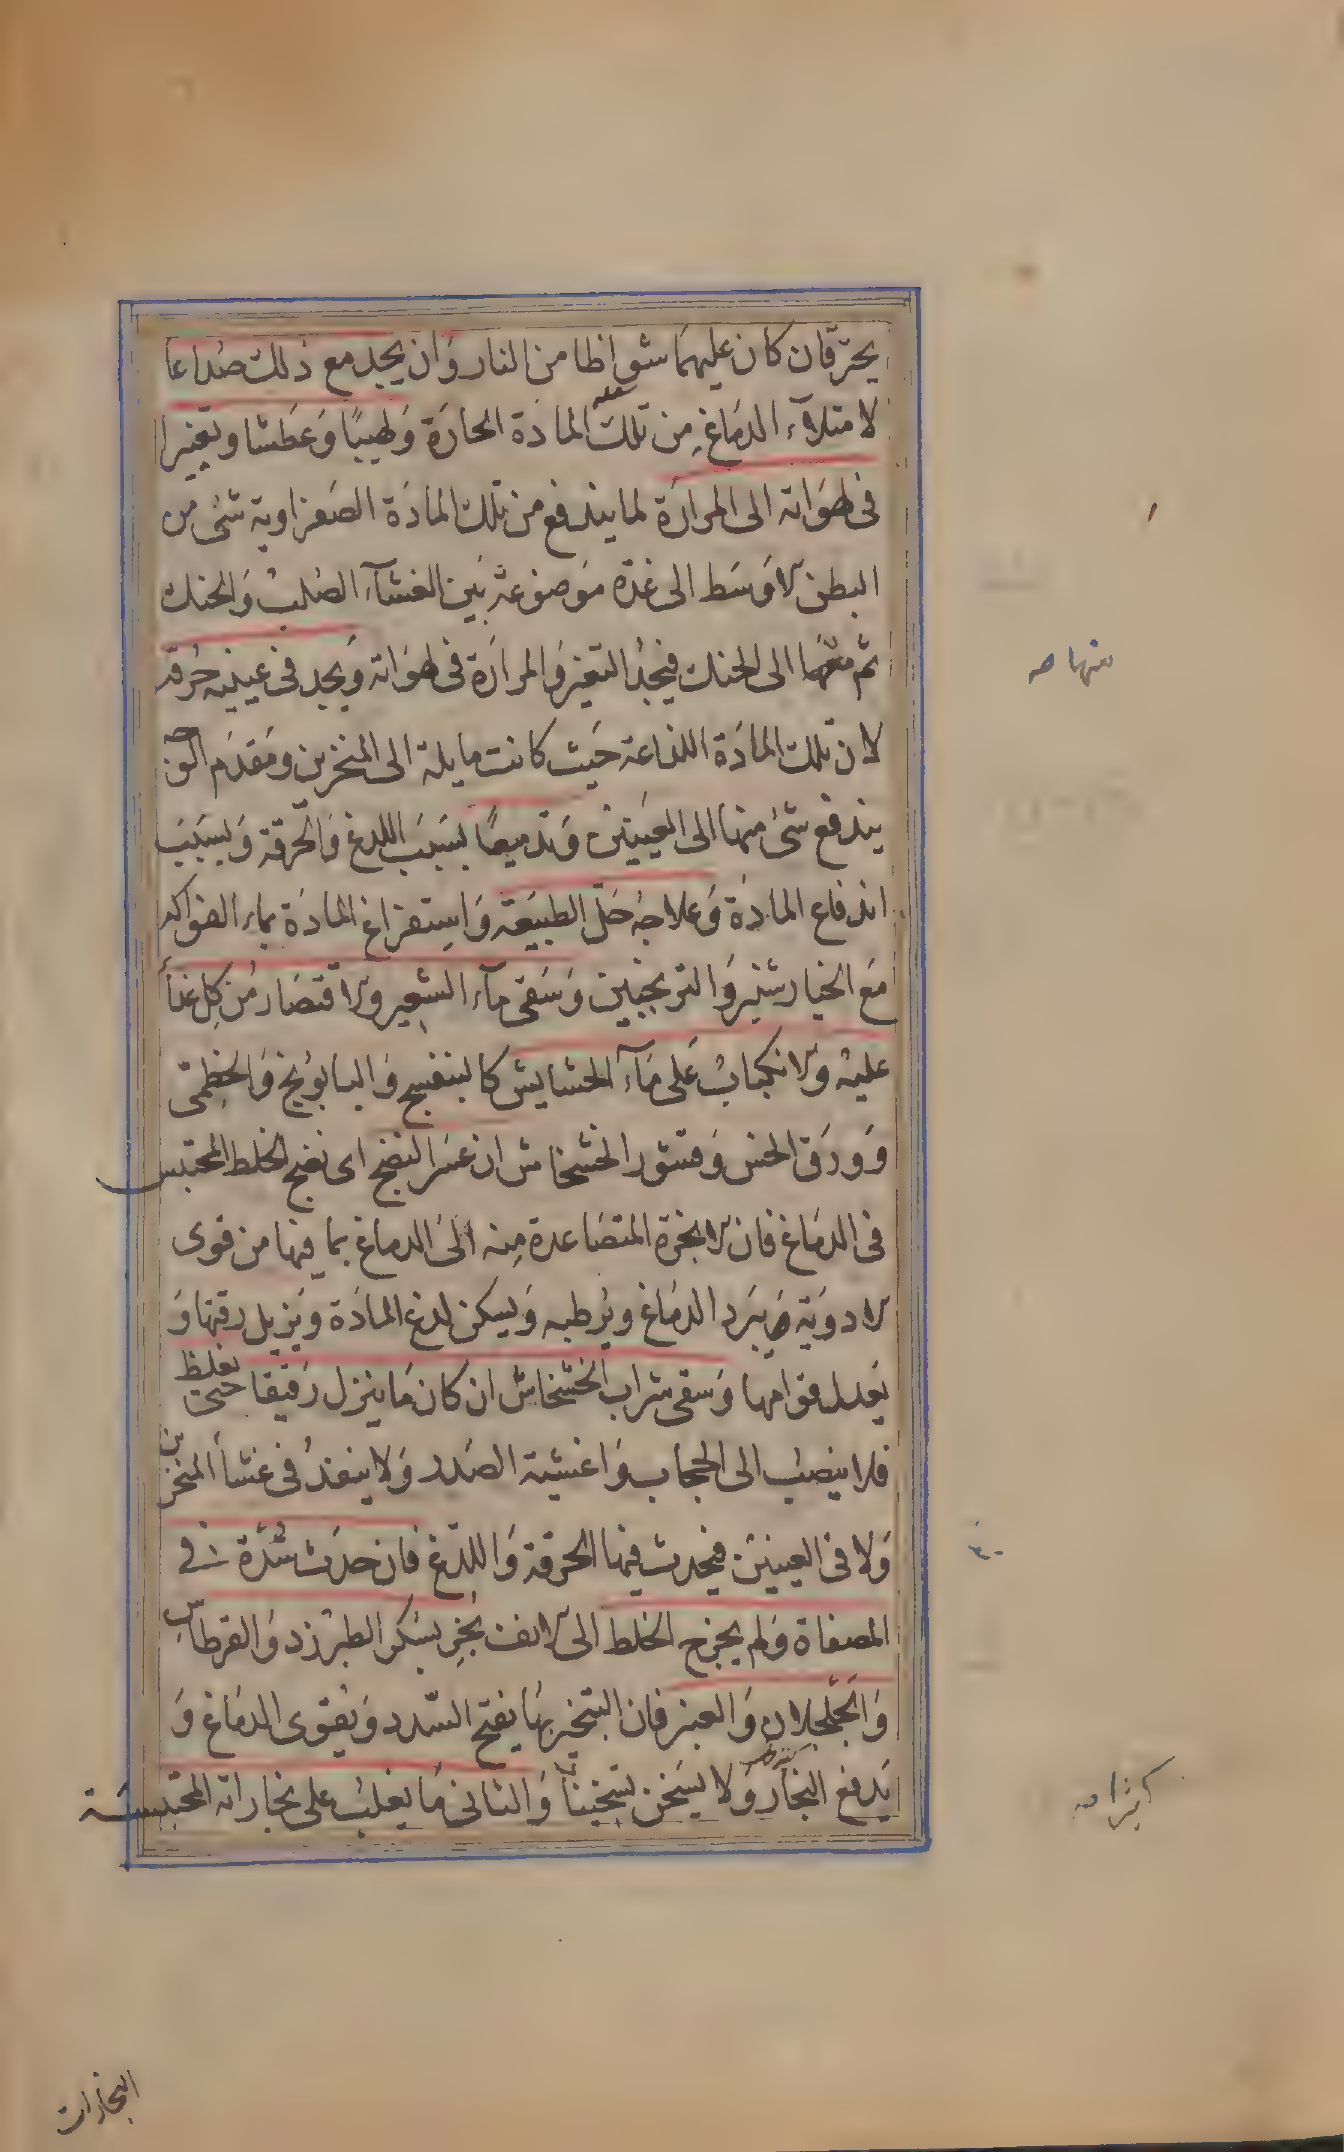 يحترقان كان عليهما شواظا من النار وان يجد مع ذلك صداعا
لامتلاء الدماغ من تلك المادة الحارة ولهيبًا وعطشا وتغيرا
فى لهواته الى المرارة لما يندفع من تلك المادة الصفراوية شئ من
البطن الاوسط الى غدة موضوعة بين الغشاء الصلب والحنك
ثم منها الى الحنك فيجد التغير والمرارة فى لهواته ويجد فى عينيه حرقة
لان تلك المادة اللذاعة حيث كانت مايلة الى المنخرين ومقدم الوجه
يندفع شئ منها الى العينين وتدميعًا بسبب اللدغ والحرقة وبسبب
اندفاع المادة وعلاجه حل الطبيعة واستفراغ المادة بماء الفواكه
مع الخيارشنبر والترنجبين وسقى ماء الشعير والاقتصار من كل غذاء
عليه والانكباب على ماء الحشايش كالبنفسج والبابونج والخطمى
وورق الخس وقشور الخشخاش ان عسر النضج اى نضج الخلط المحتبس
فى الدماغ فان الابخرة المتصاعدة منه الى الدماغ بما فيها من قوى
الادوية يبرد الدماغ ويرطبه ويسكن لدغ المادة ويزيل رقتها و
يعدل قوامها وسقى شراب الخشخاش ان كان ما ينزل رقيقا حتى يغلظ
فلا ينصب الى الحجاب واغشية الصدر ولا ينفذ فى غشاء المنخرين
ولا فى العينين فيحدث فيها الحرقة واللدغ فان حدث سدة فى
المصفاة ولم يخرج الخلط الى الانف بخر بسكر الطبرزد والقرطاس
والجلجلان والعنبر فان التبخر بها يفتح السدد ويقوى الدماغ و
يدفع البخار ولا يسخن تسخينًا والثانى ما يغلب على بخاراته المحتبسة
منها صه
كثيرا صه
البخارات